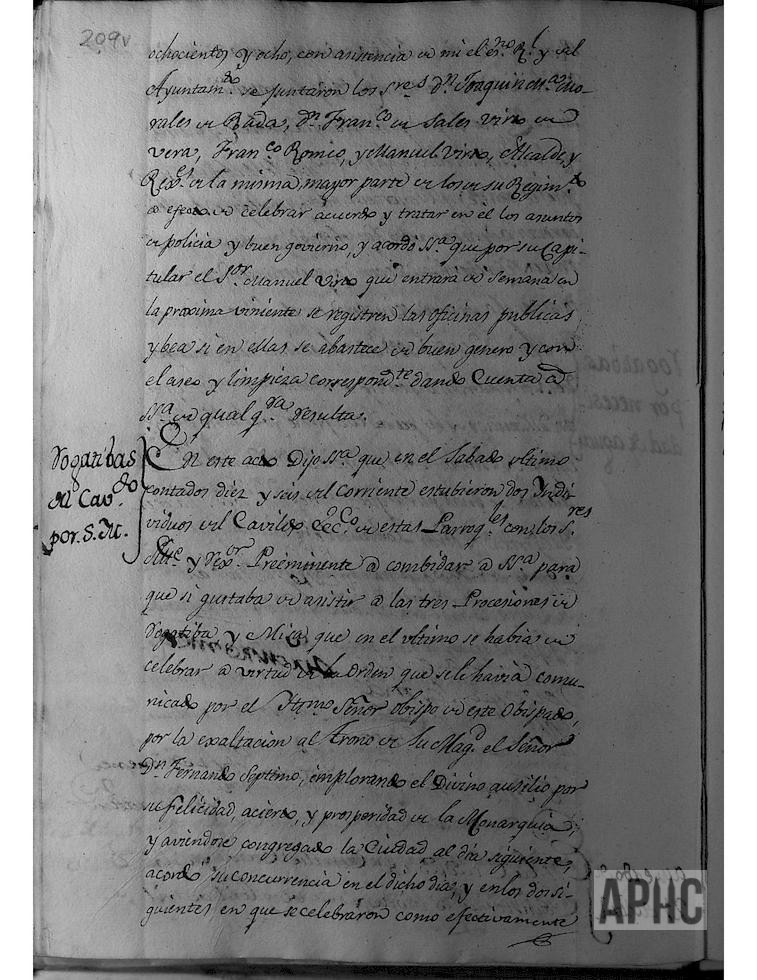 209v
ochocientos y ocho, con asistencia de mi el es.no R.l y del
Ayuntam.to se juntaron los s.res D.n Joaquin M.a Mo-
rales de Rada, D.n Fran.co de Sales Virto de
Vera, Fran.co Romeo, y Manuel Virto, Alcalde, y
Rex.es de la misma, mayor parte de los de su Regim.to
a efecto de celebrar acuerdo y tratar en el los asuntos
de policia y buen govierno, y acordó S.Sa que por su Capi-
tular el S.or Manuel Virto que entrará de semana en
la proxima viniente se registren las oficinas publicas
y bea si en ellas se abastece de buen genero y con
el aseo y limpieza correspond.te dando Cuenta a
S.Sa de qualq.ra resulta.
Rogatibas
del Cav.do
por S. M.
En este acto Dijo S.Sa que en el Sabado ultimo
contados diez y seis del corriente estubieron dos Yndi-
viduos del Cavildo Ecc.co de estas Parroq.les con los S.res
Alc.e y Rex.or Preeminente a combidar a S.Sa para
que si gustaba de asistir a las tres Procesiones de
Rogatiba y Misa que en el ultimo se habia de
celebrar a virtud de la Orden que se le havia comu-
nicado por el Yltmo. Señor obispo de este Obispado,
por la exaltacion al trono de Su Mag.d el Señor
D.n Fernando Septimo, implorando el Divino ausilio por
su felicidad, acierto, y prosperidad de la Monarquia,
y aviendose congregado la Ciudad al dia siguiente,
acordó su concurrencia en el dicho dia, y en los dos si-
guientes en que se celebraron como efectivamente
APHC